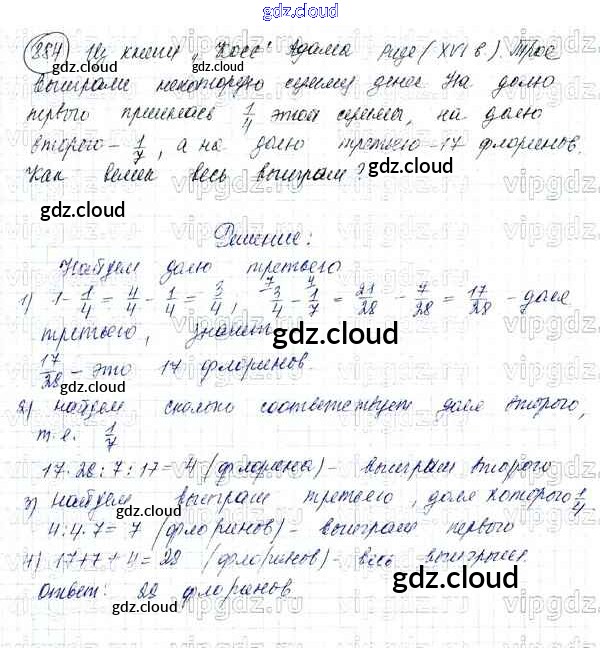 gdz.cloud
884) Из книги „Косс" Адама Ризе (XVI в). Трое
выиграли некоторую сумму денег На долю
первого пришлась 1/4 этой суммы, на долю
второго - 1/7, а на долю третьего - 17 флоринов.
Как велик весь выигрыш?
Решение:
Найдем долю третьего
1) 1 - 1/4 = 4/4 - 1/4 = 3/4, 3/4 - 1/7 = 21/28 - 7/28 = 17/28 - доля
третьего, значит
17/28 - это 17 флоринов.
2) найдем сколько соответствует доля второго,
т.е. 1/7
17·28:7:17 = 4 (флорина) - выиграш второго
3) найдем выиграш третьего, доля которого 1/4
4:4·7 = 7 (флоринов) - выиграш первого
4) 17+7+4 = 28 (флоринов) - весь выигрыш.
Ответ: 28 флоринов.
gdz.cloud
gdz.cloud
gdz.cloud
gdz.cloud
gdz.cloud
gdz.cloud
gdz.cloud
gdz.cloud
gdz.cloud
gdz.cloud